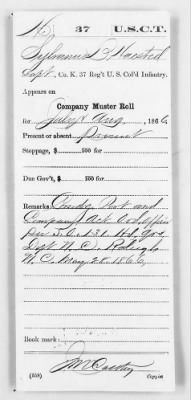 K 37 U.S.C.T.
Sylvanus
Capt, Co. K, 37 Reg't U. S. Col'd Infantry.
Appears on
Company Muster Roll
for July & Aug, 1866.
Present or absent Present
Stoppage, $ 100 for
Due Gov't, $ 100 for
Remarks: Comdg Post and
Company
per S.O. 131. Hd. Qrs.
Dept N.C. Raleigh
N.C. May 28. 1866,
Book mark:
(358) Copyist